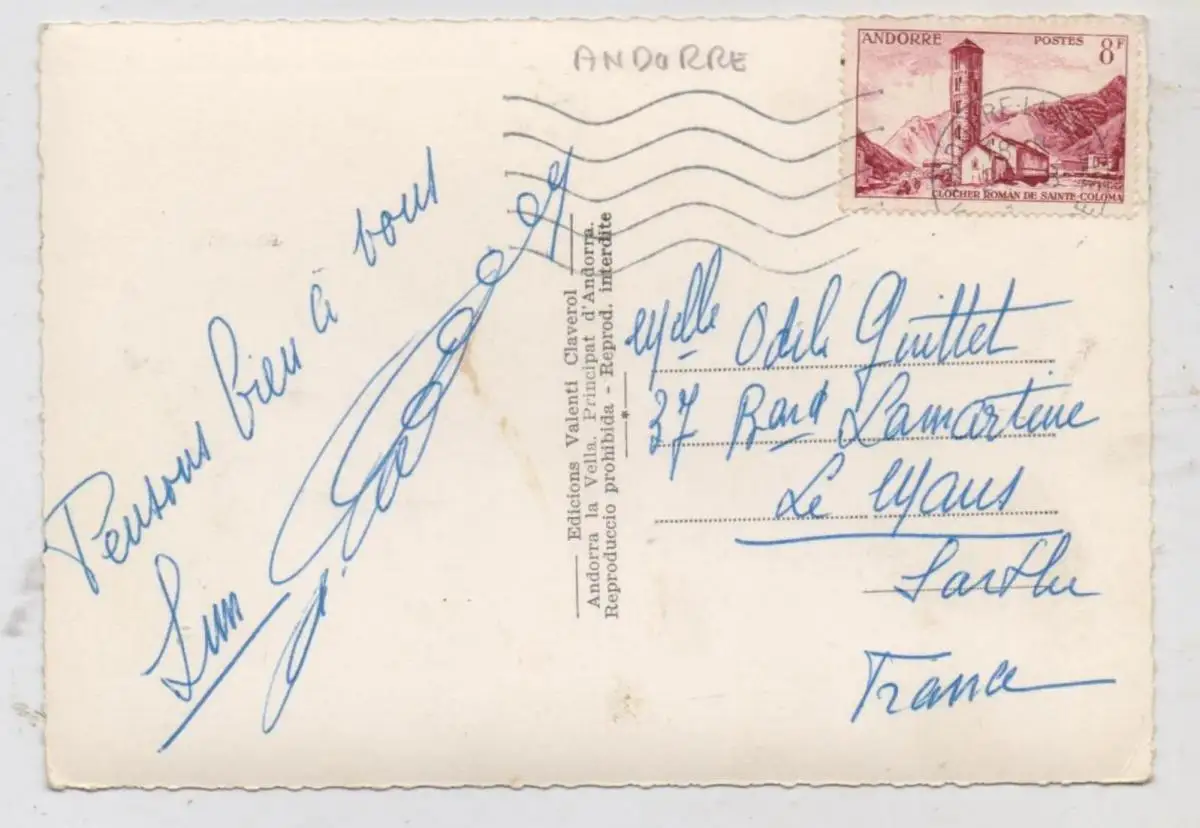 ANDORRE
ANDORRE POSTES 8F
CLOCHER ROMAN DE SAINTE-COLOMA
Pensons bien à vous
Edicions Valenti Claverol
Andorra la Vella. Principat d'Andorra.
Reproduccio prohibida - Reprod. interdite
Melle Odile Guittet
37 Bard Lamartine
Le Mans
Sarthe
France